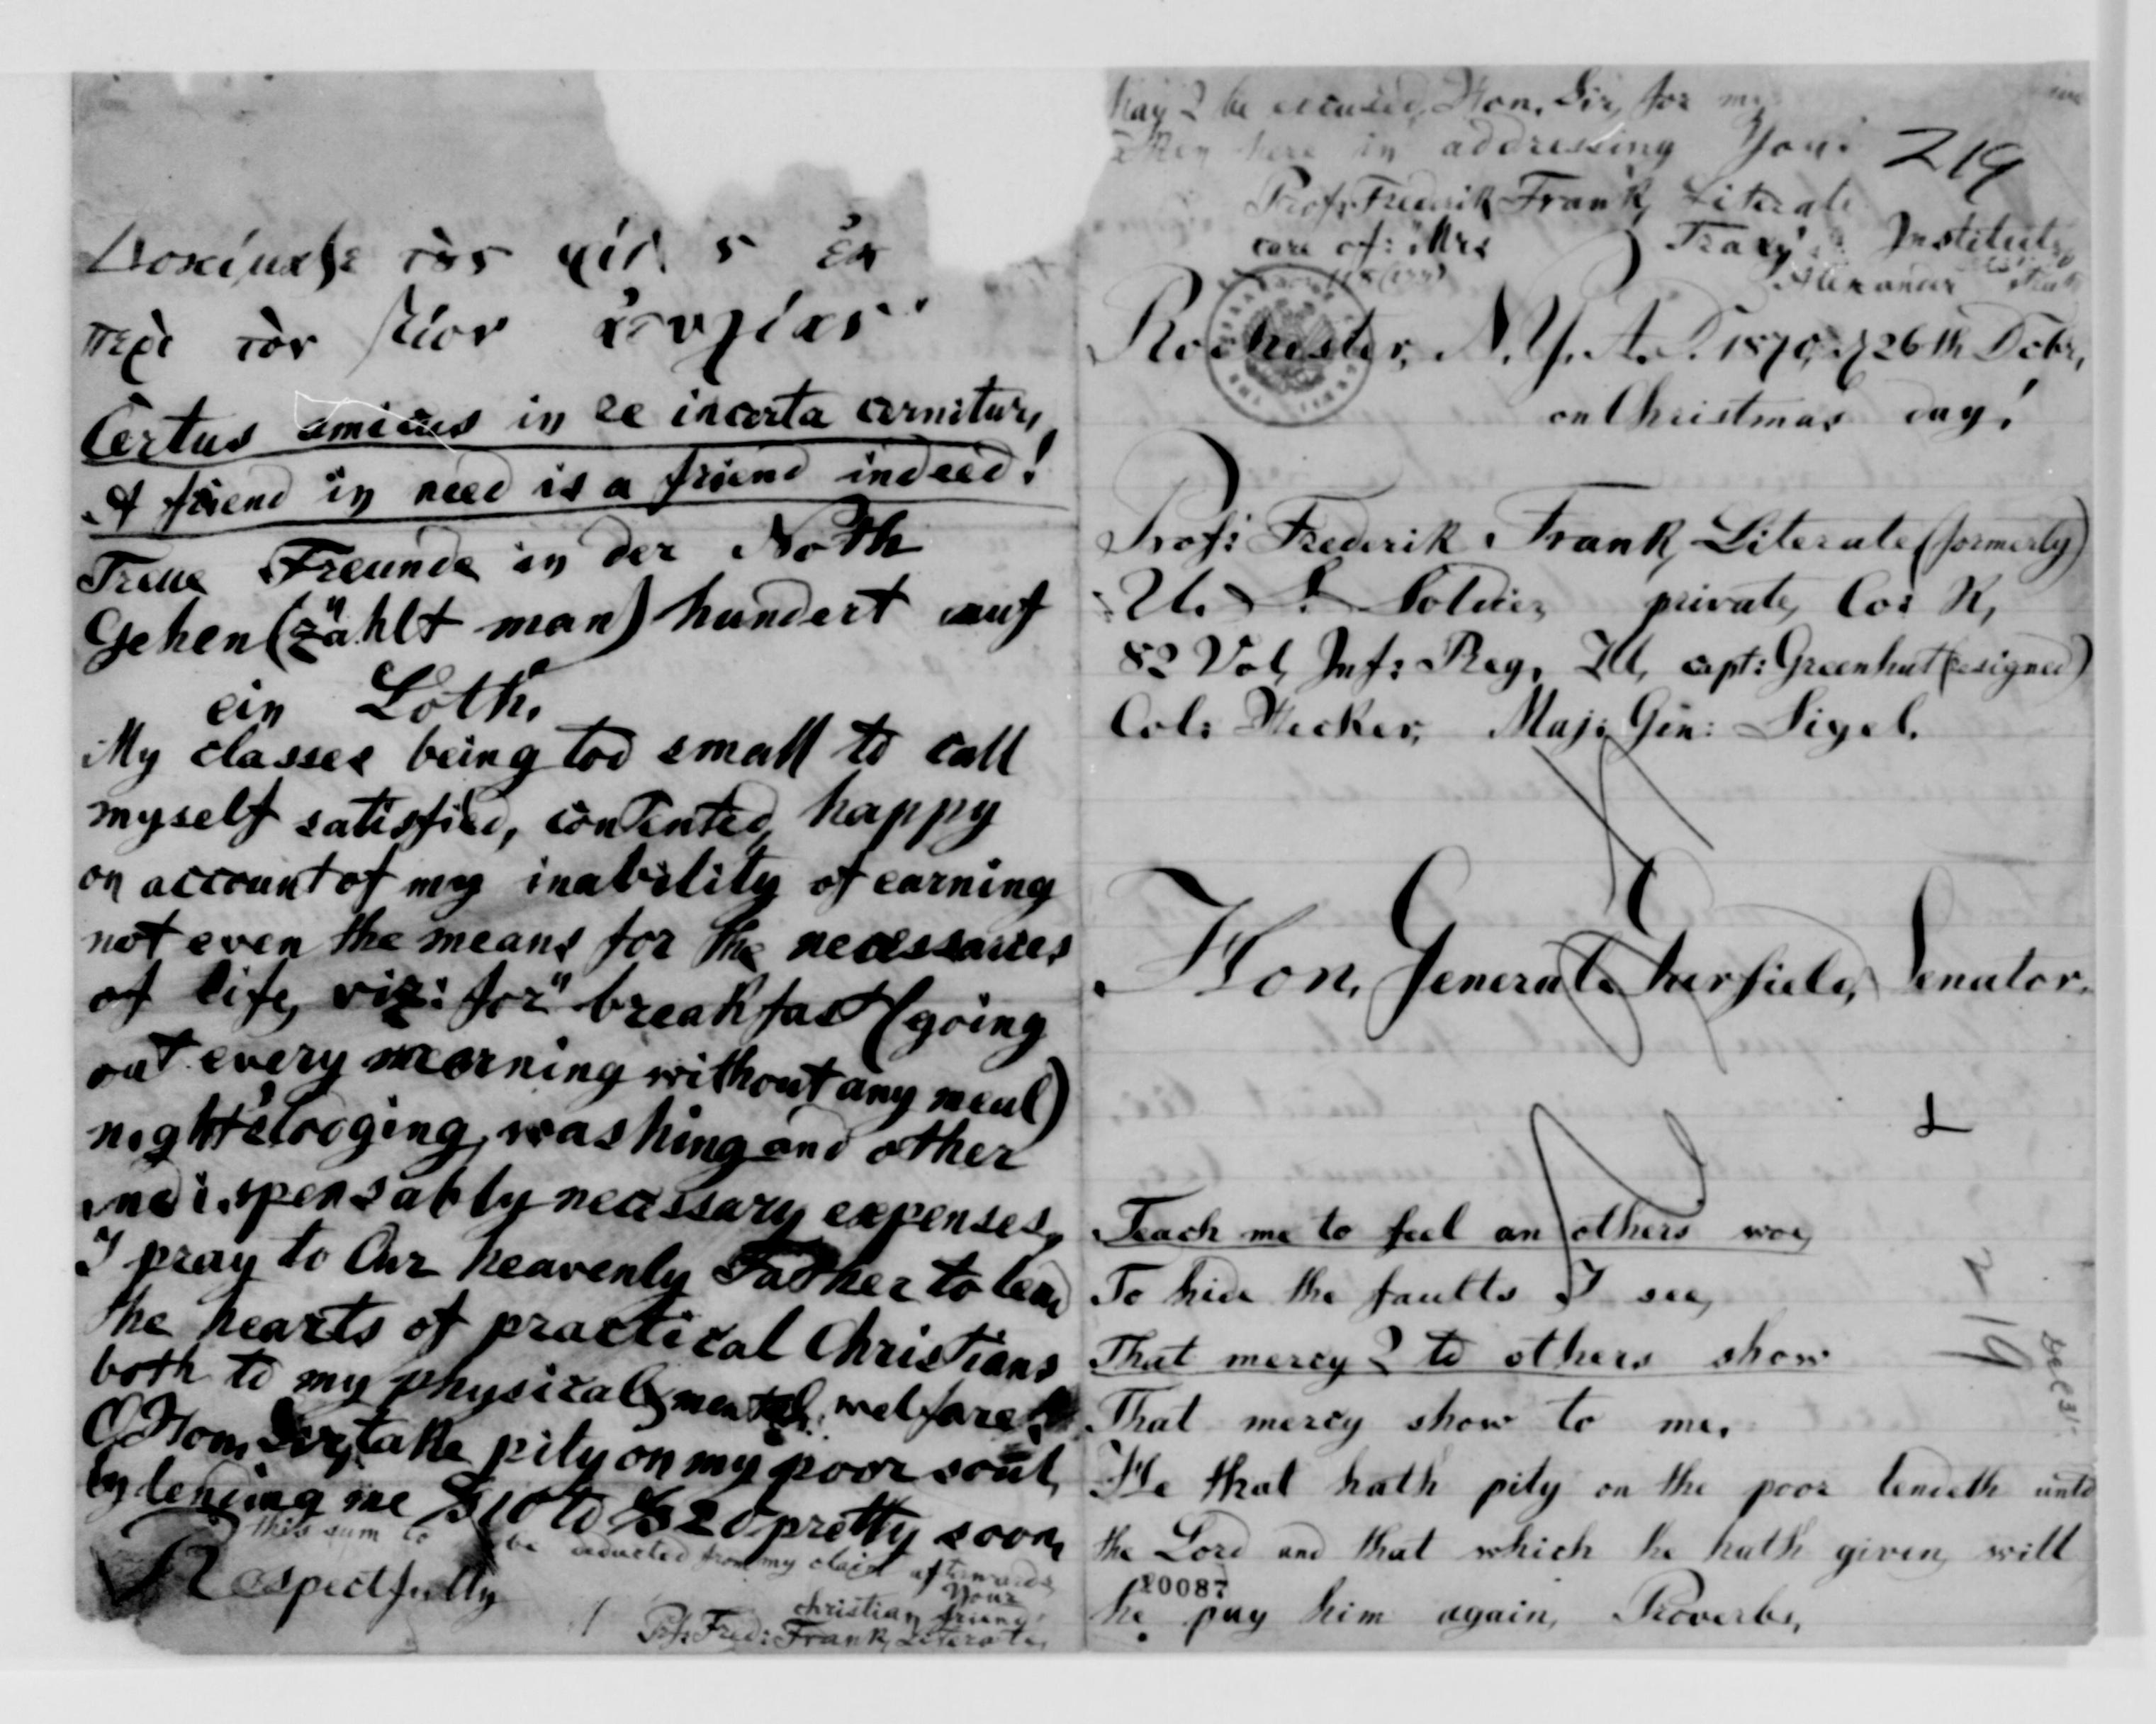 May I be excused, Hon. Sir, for my
here in addressing You!
219
Prof: Frederik Frank, Literate
care of: Mrs Tracy's Institute,
Alexander
Rochester, N. Y. A. D. 1870, 26th Decbr,
on Christmas day!
Prof: Frederik Frank, Literate (formerly)
U. S. Soldier, private, Co: K,
82 Vol, Inf: Reg, Ill, capt: Greenhut (resigned)
Col: Hecker, Maj: Gen: Sigel.
Hon. General Garfield, Senator.
Teach me to feel an others woe,
To hide the faults I see,
That mercy I to others show
That mercy show to me.
He that hath pity on the poor lendeth unto
the Lord and that which he hath given, will
20087
he pay him again, Proverbs,
219
τὸν ἐκ
περὶ τὸν βίον ἀτυχίας
Certus amicus in re incerta cernitur,
A friend in need is a friend indeed!
Treue Freunde in der Noth
Gehen (zählt man) hundert auf
ein Loth.
My classes being too small to call
myself satisfied, contented, happy
on account of my inability of earning
not even the means for the necessaries
of life, viz: for breakfast (going
out every morning without any meal)
night's lodging, washing and other
indispensably necessary expenses,
I pray to Our heavenly Father to lead
the hearts of practical Christians
both to my physical & mental welfare
O Hon. Sir, take pity on my poor soul,
by lending me $10 to $20 pretty soon,
this sum to be deducted from my claim afterwards
Respectfully Your
christian friend
Prf: Fred: Frank, Literate,